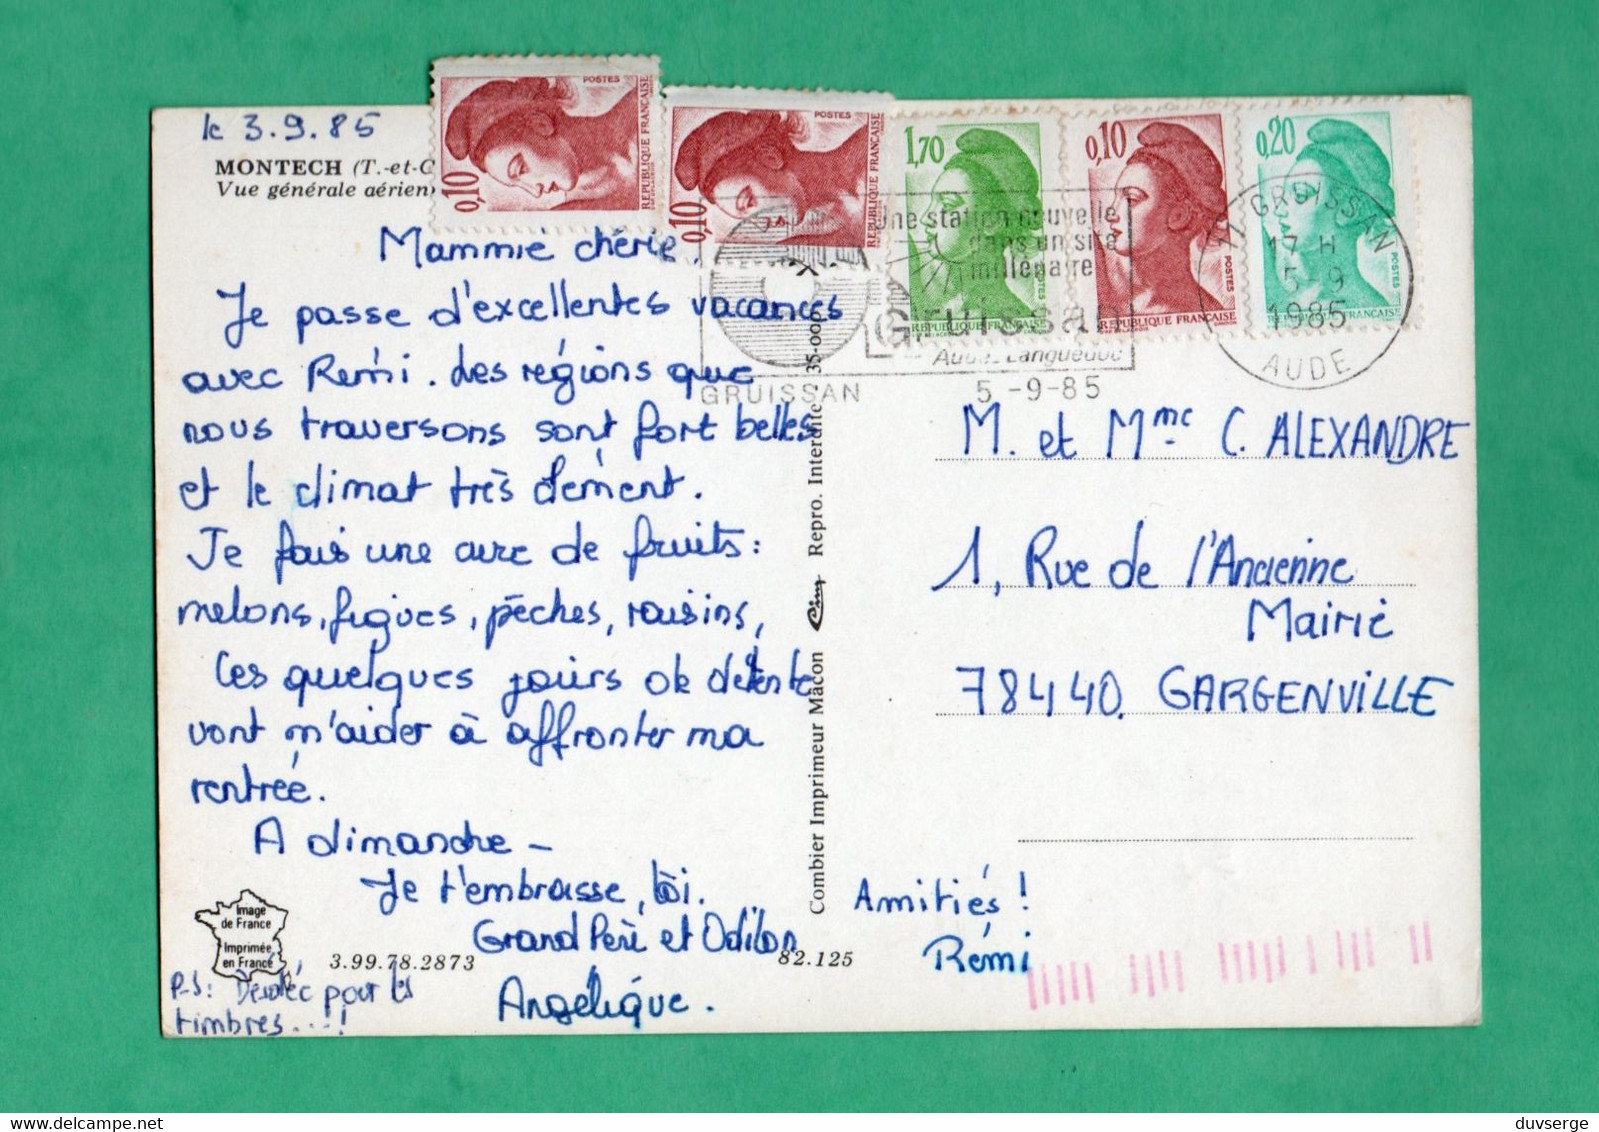 le 3.9.85
MONTECH (T.-et-G
Vue générale aérien
Mammie chérie,
Je passe d'excellentes vacances
avec Rémi. Les régions que
nous traversons sont fort belles
et le climat très clément.
Je fais une cure de fruits:
melons, figues, pêches, raisins,
Ces quelques jours de détente
vont m'aider à affronter ma
rentrée.
A dimanche –
Je t'embrasse, toi,
Grand Père et Odilon
Angélique.
P-S: Désolée pour les
timbres...!
Image
de France
Imprimée
en France
3.99.78.2873
82.125
Combier Imprimeur Mâcon Cim Repro. Interdite 35-00
0,10 POSTES REPUBLIQUE FRANÇAISE
0,10 POSTES REPUBLIQUE FRANÇAISE
1,70 POSTES REPUBLIQUE FRANÇAISE
0,10 POSTES REPUBLIQUE FRANÇAISE
0,20 POSTES REPUBLIQUE FRANÇAISE
Une station nouvelle
dans un site
millénaire
Gruissan
Aude-Languedoc
GRUISSAN
5-9-85
GRUISSAN
17 H
5-9
1985
AUDE
M. et Mme C. ALEXANDRE
1, Rue de l'Ancienne
Mairie
78440. GARGENVILLE
Amitiés!
Rémi
duvserge